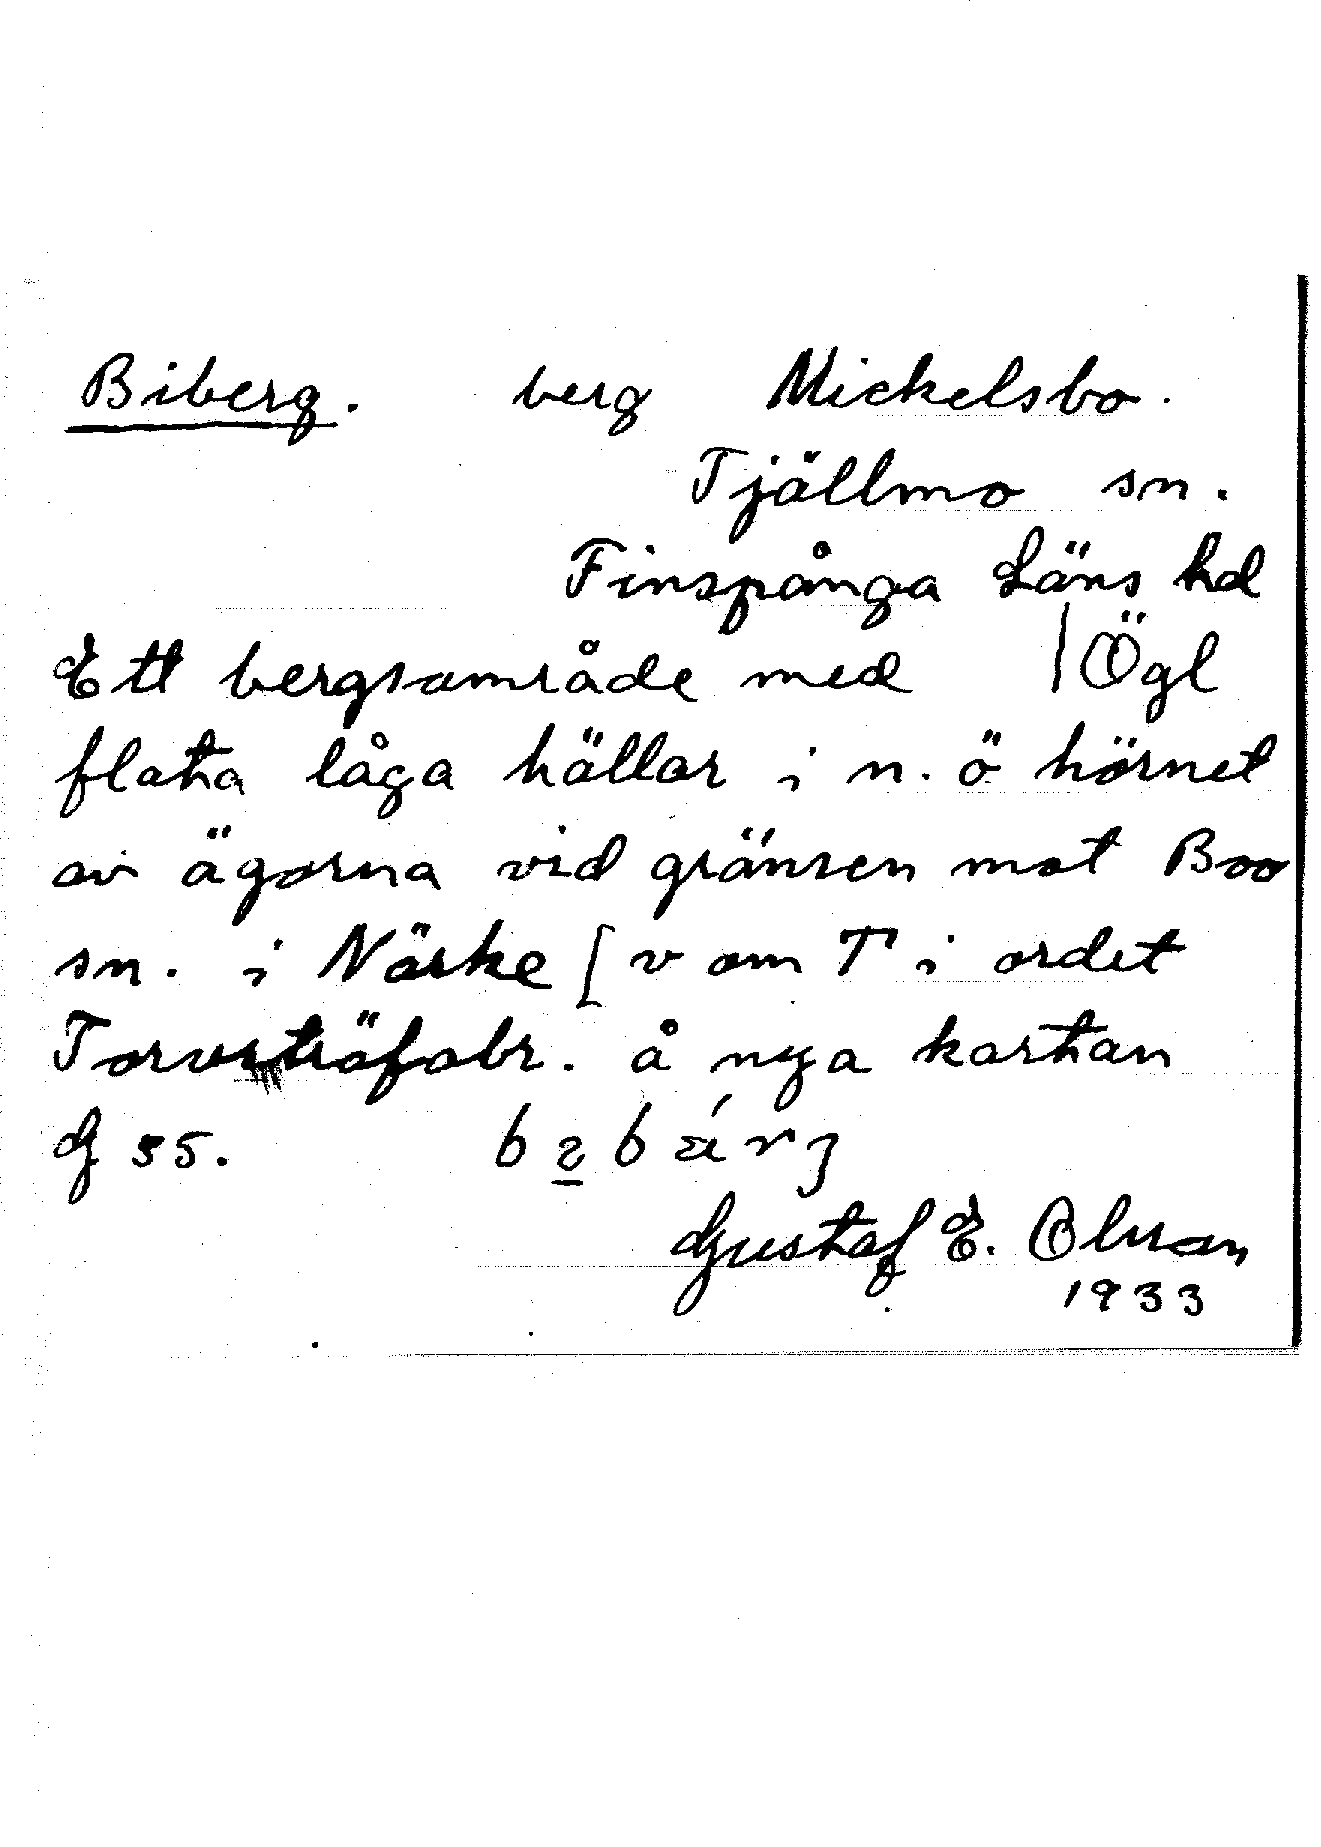 Biberg. berg Mickelsbo.
Tjällmo sn.
Finspånga Läns hd
Ett bergsområde med | Ögl
flata låga hällar i n. ö hörnet
av ägorna vid gränsen mot Boo
sn. i Närke [ v om T i ordet
Torvströfabr. å nya kartan
G 35.
Gustaf E. Olsson
1933